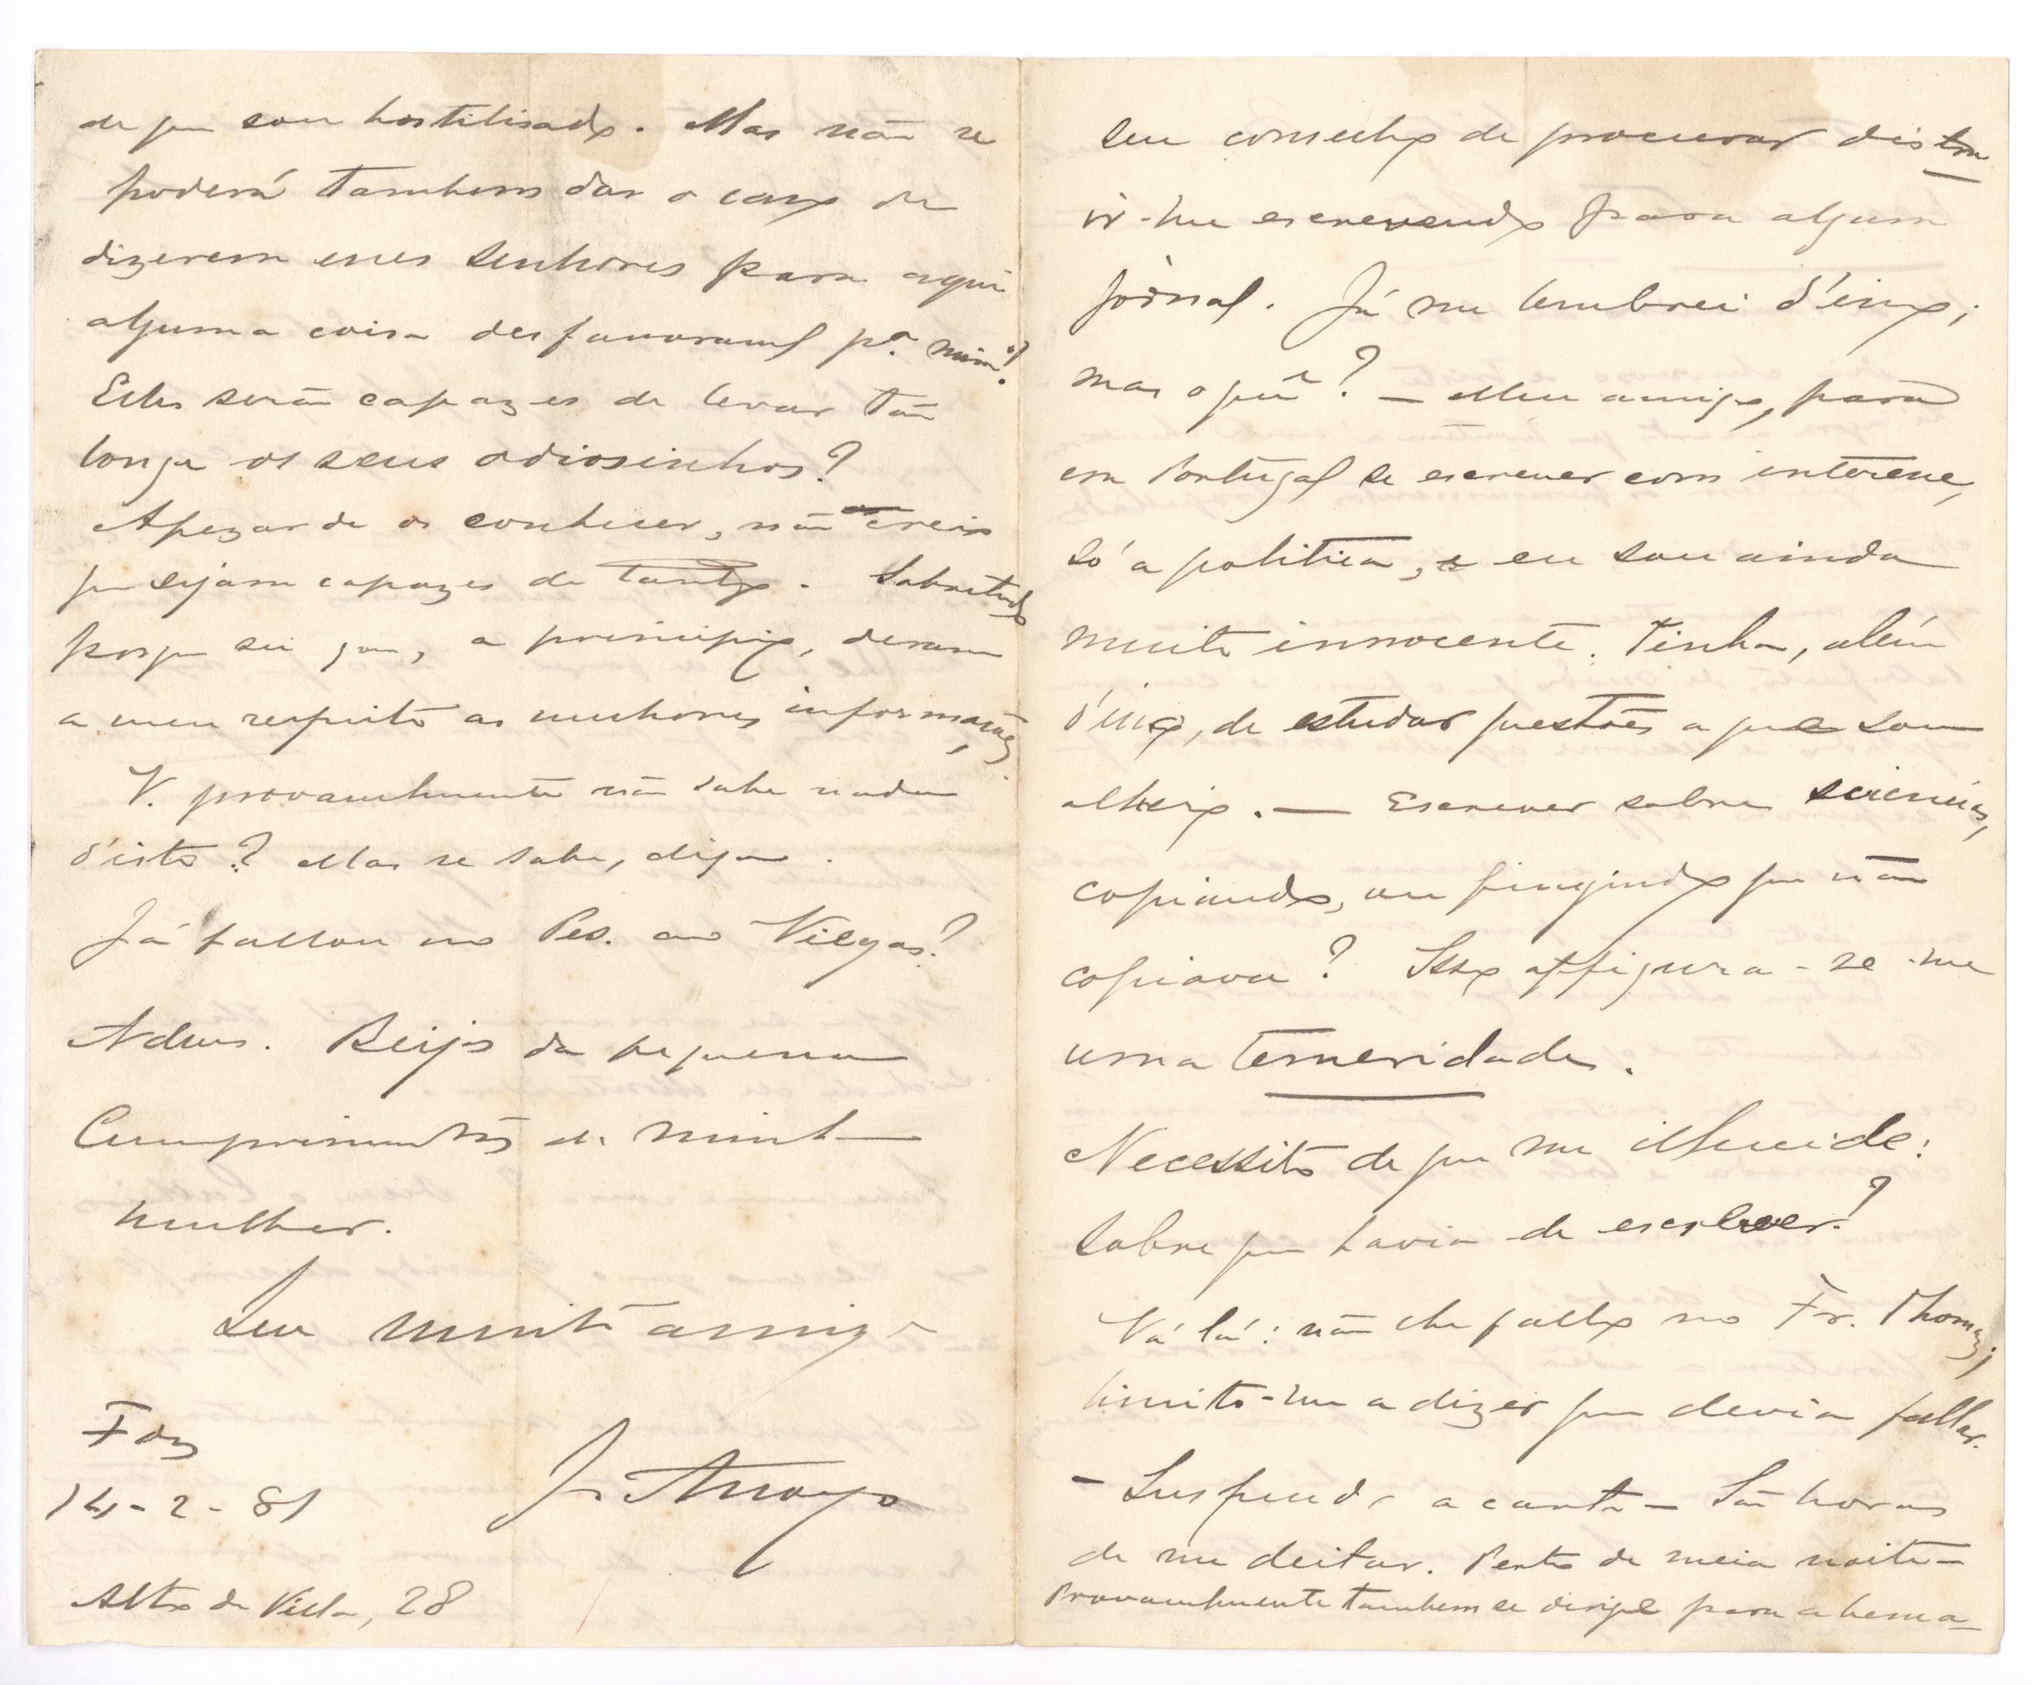 de que sou hostilisado. Mas não se
poderá tambem dar o caso de
dizerem esses senhores para aqui
alguma coisa desfavoravel p.ª mim?!
Elles serão capazes de levar tão
longe os seus odiosinhos?
Apezar de os conhecer, não creio
que sejam capazes de tanto. Sobretudo
porque sei que, a principio, deram
a meu respeito as melhores informações.
V. provavelmente não sabe nada
d'isto? Mas se sabe, diga.
Já fallou no Pes. ao Viegas?
Adeus. Beijos da pequena
Cumprimentos de minha
mulher.
Seu muito amigo
J. Arroyo
Foz
14-2-81
Alto da Villa, 28
seu conselho de procurar distra
ir-me escrevendo para algum
jornal. Já me lembrei d'isso;
mas o quê? — Meu amigo, para
em Portugal se escrever com interesse,
só a politica, e eu sou ainda
muito innocente. Tinha, além
d'isso, de estudar questões a que sou
alheio. — Escrever sobre sciencias,
copiando, ou fingindo que não
copiava? Isso affigura-se-me
uma temeridade.
Necessito de que me ellucide:
sobre que havia de escrever?
Vá lá: não lhe fallo no Fr. Thomaz;
limito-me a dizer que devia fallar.
— Suspendo a carta — São horas
de me deitar. Perto de meia noite —
Provavelmente tambem se dirige para a cama —